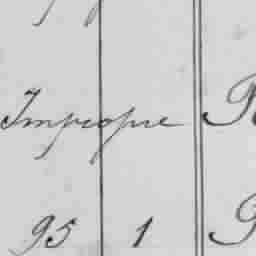 Impropre
95 1